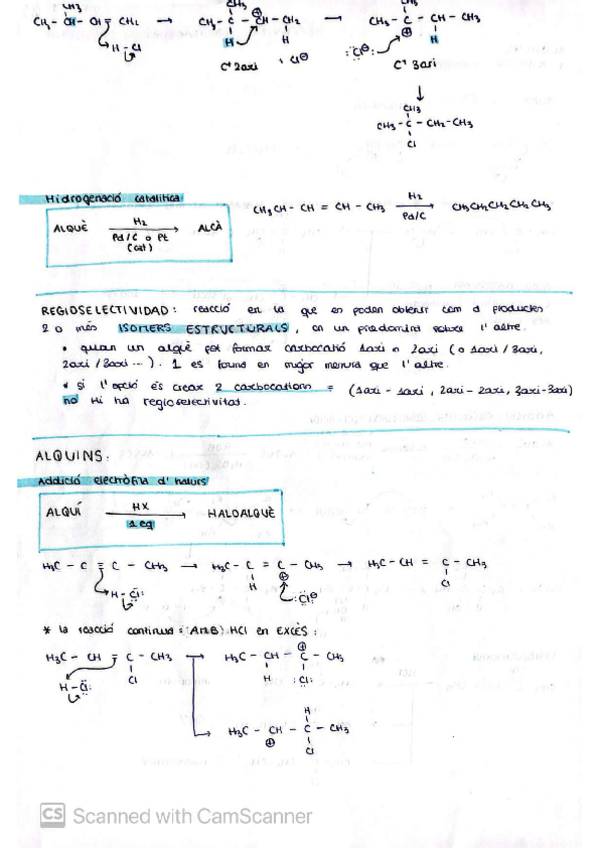 CH3
CH3 - CH - CH = CH2 → CH3 - C - CH - CH2 → CH3 - C - CH - CH3
H - Cl
H H
Cl⊖
:Cl⊖
H
C+ 2ari
C+ 3ari
↓
CH3
CH3 - C - CH2 - CH3
Cl
Hidrogenació catalítica
ALQUÈ H2 Pd/C o Pt (cat) → ALCÀ
CH3CH - CH = CH - CH3 H2 Pd/C → CH3CH2CH2CH2CH3
REGIOSELECTIVIDAD: reacció en la que es poden obtenir com a productes
2 o més ISOMERS ESTRUCTURALS, on un predomina sobre l'altre.
• quan un alquè pot formar carbocatió 1ari o 2ari (o 1ari / 3ari,
2ari / 3ari ...). 1 es forma en major mesura que l'altre.
* si l'opció és crear 2 carbocations = (1ari - 1ari, 2ari - 2ari, 3ari-3ari)
no hi ha regioselectivitat.
ALQUINS.
Addició electròfila d'halurs
ALQUÍ HX 1 eq → HALOALQUÈ
H3C - C ≡ C - CH3 → H3C - C = C - CH3 → H3C - CH = C - CH3
H ⊕ Cl
H - Cl: :Cl⊖
* la reacció continua: (Amb) HCl en EXCÉS:
H3C - CH = C - CH3 → H3C - CH - C - CH3
Cl H :Cl:
H - Cl:
H
H3C - CH - C - CH3
⊕ Cl
CS Scanned with CamScanner